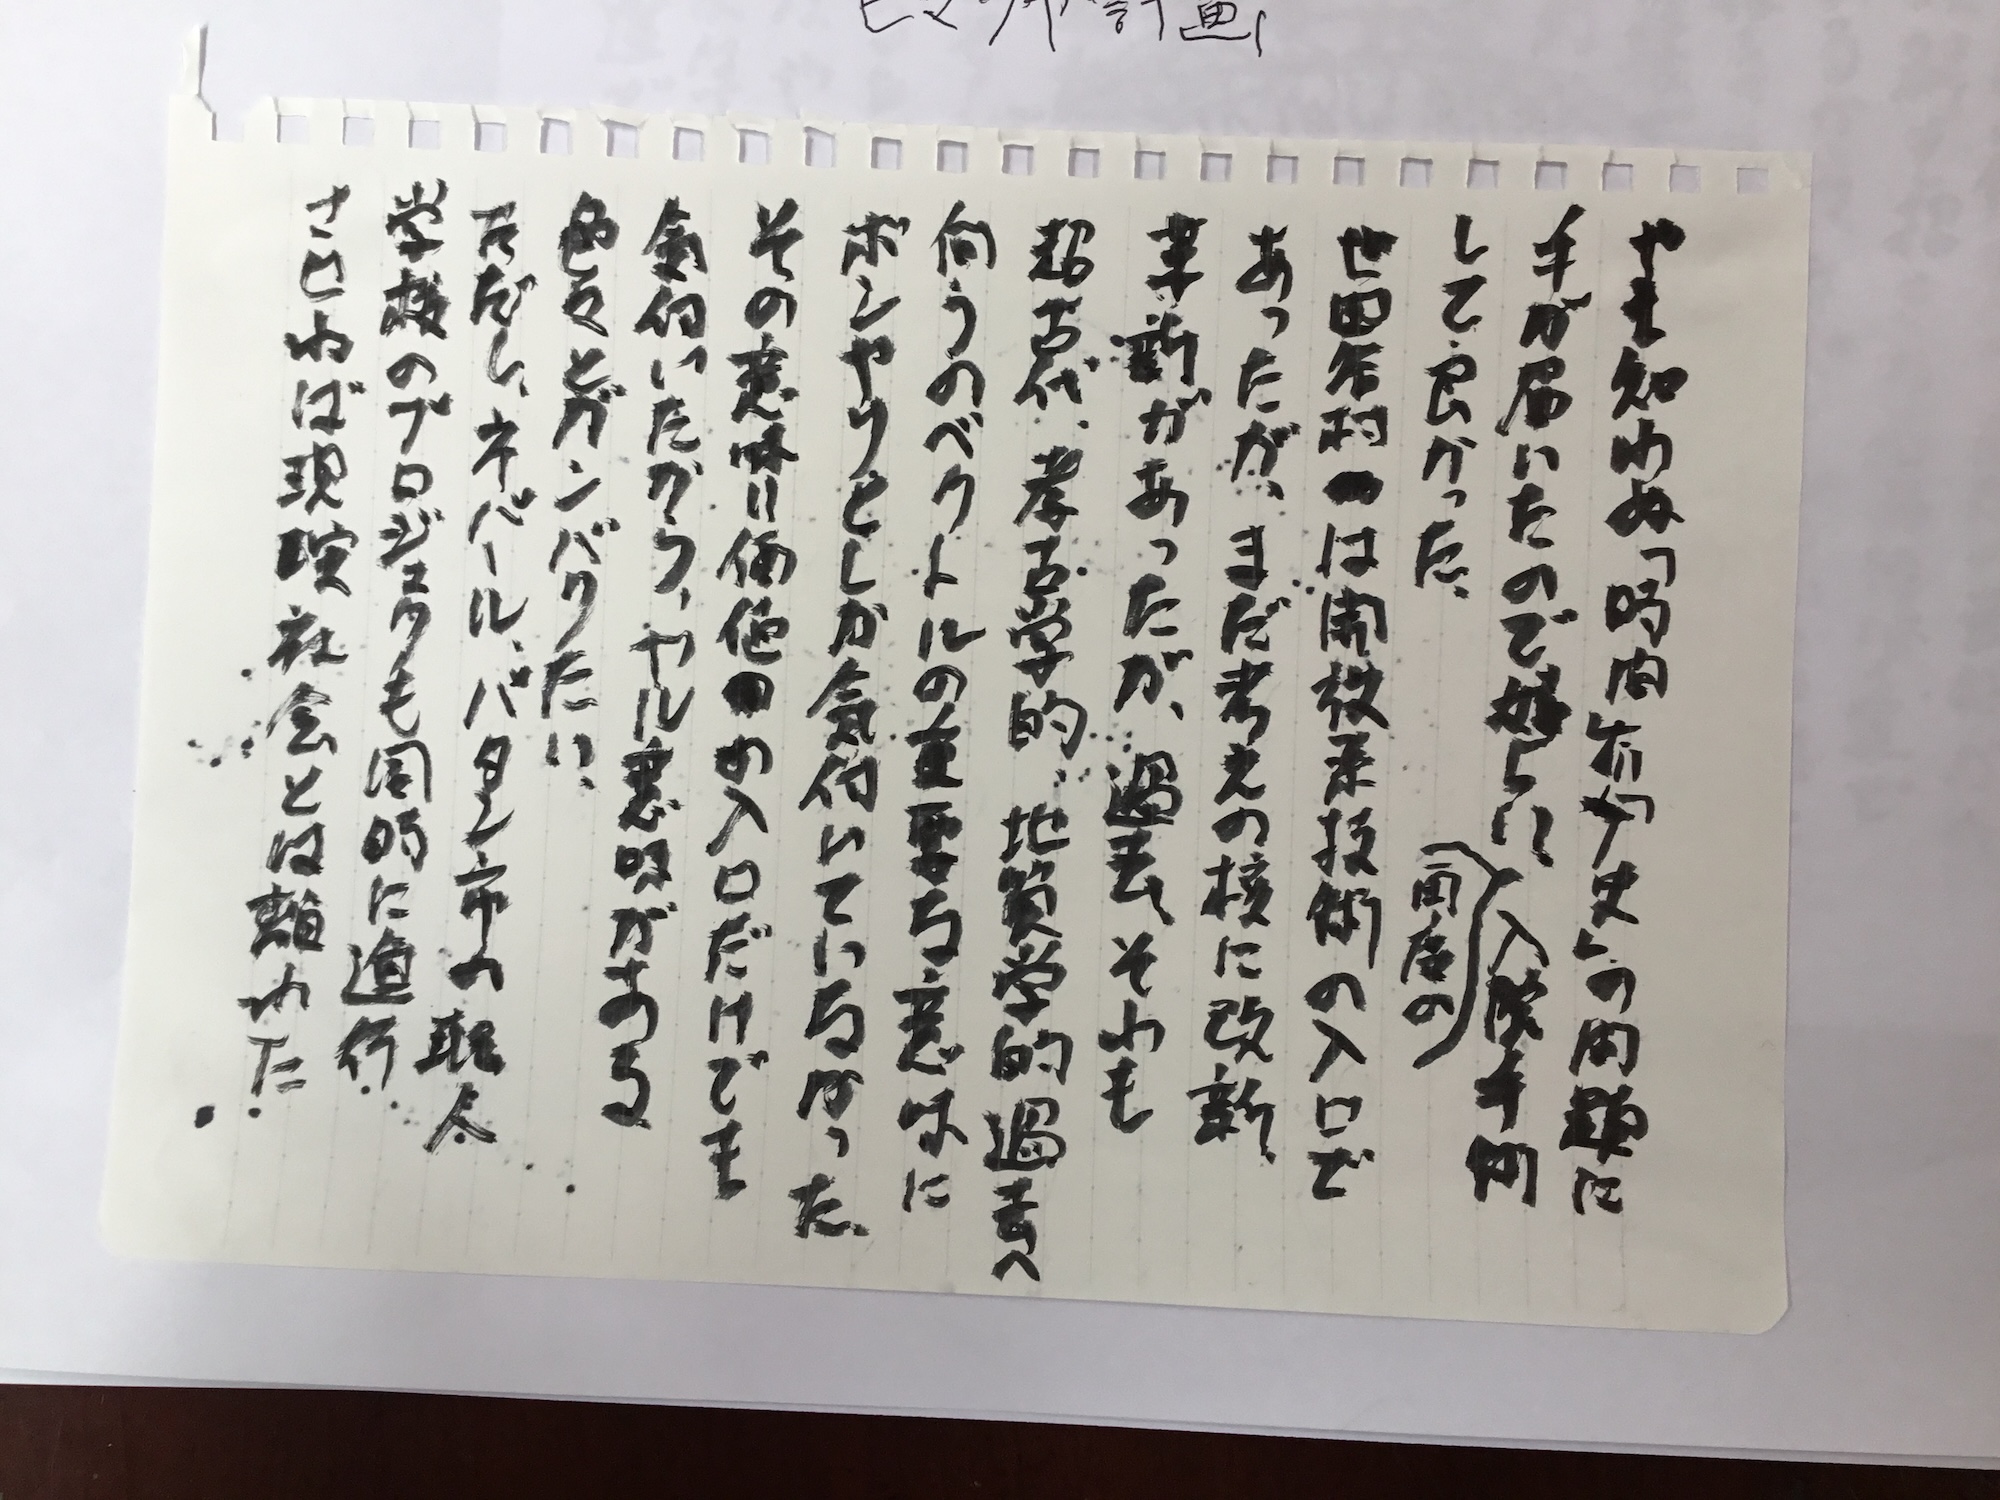 計画
やも知れぬ「時間 史」の問題に
手が届いたので 入院手術
(再度の
して良かった。
世田谷村は開放系技術の入口で
あったが、まだ考えの核に改新、
革新があったが、過去、それも
超古代、考古学的、地質学的過去へ
向うのベクトルの重要な意味に
ボンヤリとしか気付いていなかった。
その意味に価値の入口だけでも
気付いたから、ヤル意味がある
色々とガンバリたい。
ただし、ネパール、パタン市の職人
学校のプロジェクも同時に進行
さもねば現実社会とは離れた